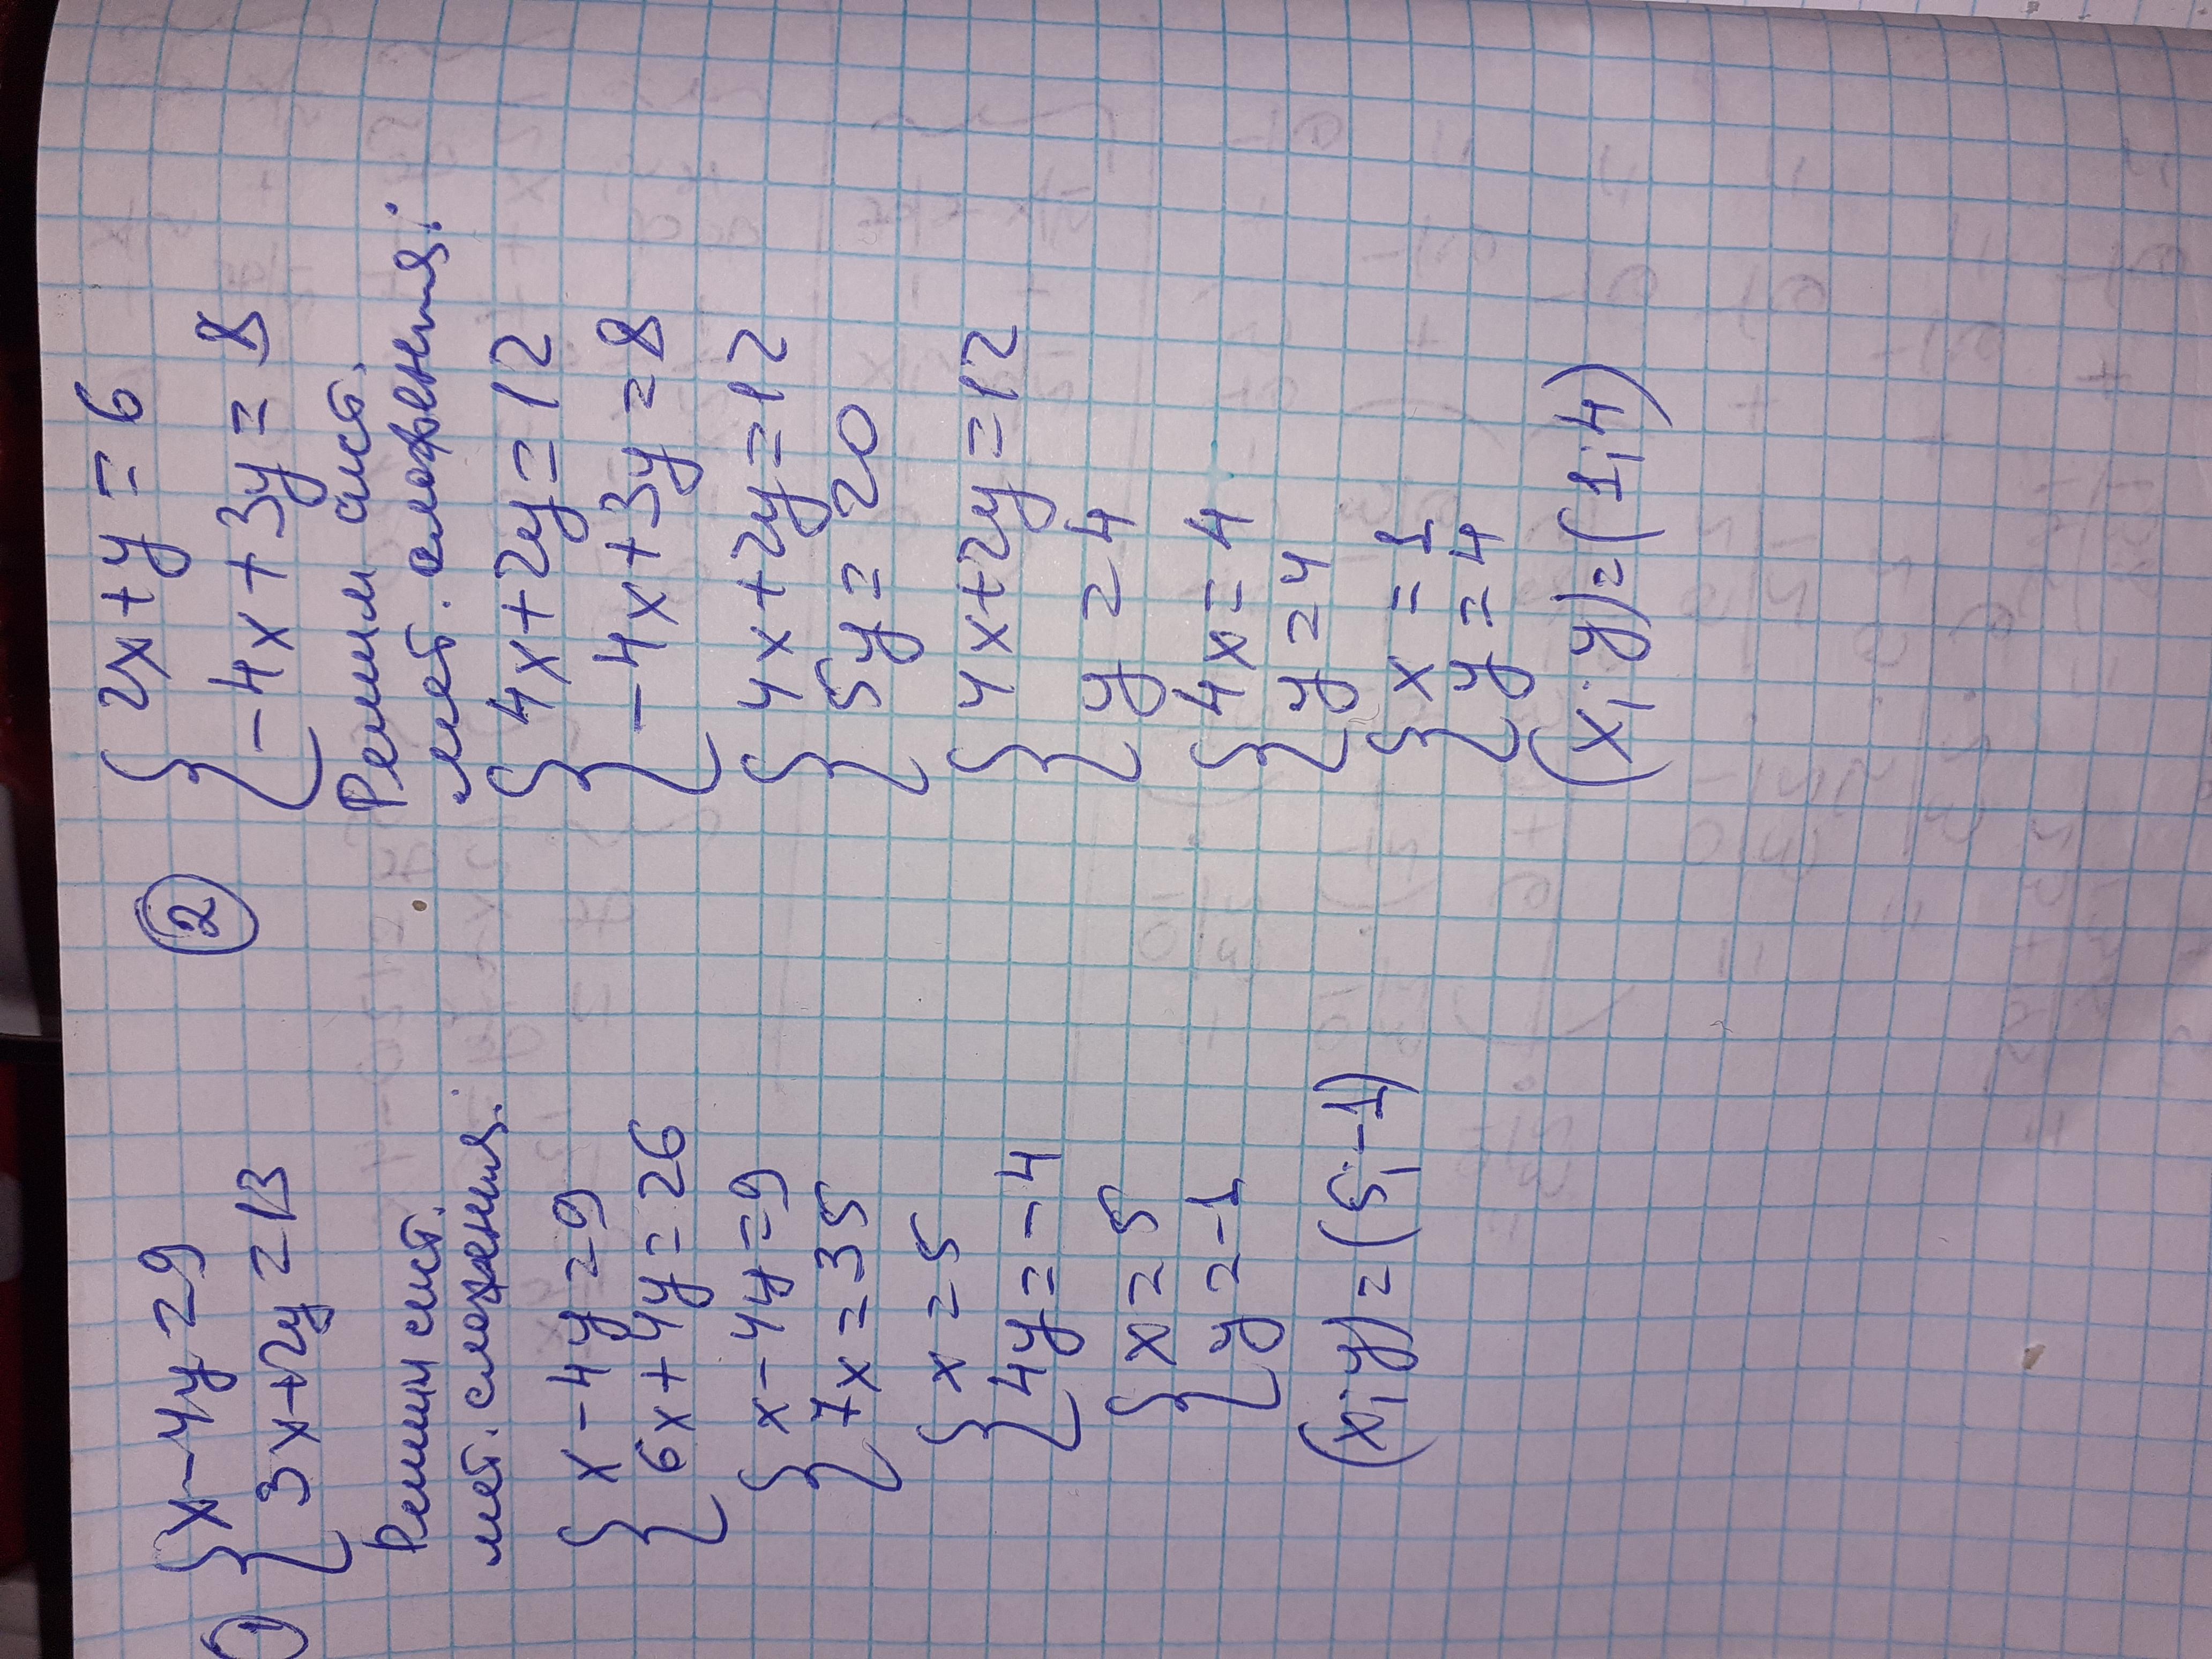 1
{ x - 4y = 9
3x + 2y = 13
Решим сист.
мет. сложения:
{ x - 4y = 9
6x + 4y = 26
{ x - 4y = 9
7x = 35
{ x = 5
4y = -4
{ x = 5
y = -1
(x; y) = (5; -1)
2
{ 2x + y = 6
-4x + 3y = 8
Решим сист.
мет. сложения:
{ 4x + 2y = 12
-4x + 3y = 8
{ 4x + 2y = 12
5y = 20
{ 4x + 2y = 12
y = 4
{ 4x = 4
y = 4
{ x = 1
y = 4
(x; y) = (1; 4)